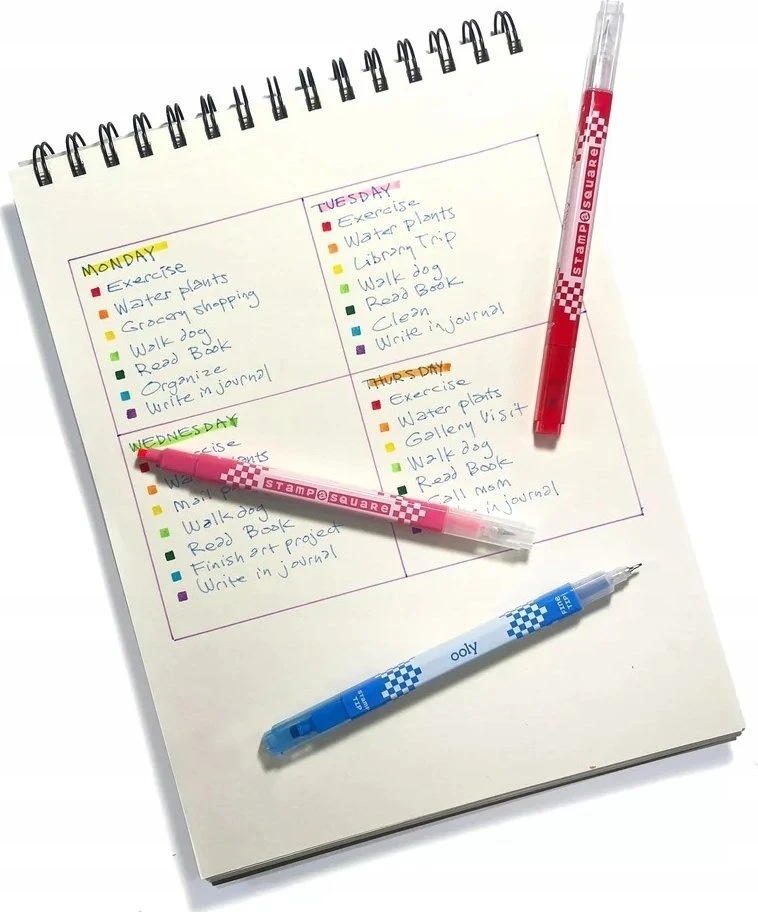 MONDAY
Exercise
Water plants
Grocery shopping
Walk dog
Read Book
Organize
Write in journal
TUESDAY
Exercise
Water plants
Library Trip
Walk dog
Read Book
Clean
Write in journal
WEDNESDAY
Mail
Walk dog
Read Book
Finish art project
Write in journal
THURSDAY
Exercise
Water plants
Gallery Visit
Walk dog
Read Book
Call mom
in journal
STAMP A SQUARE
STAMP A SQUARE
STAMP TIP
ooly
FINE TIP